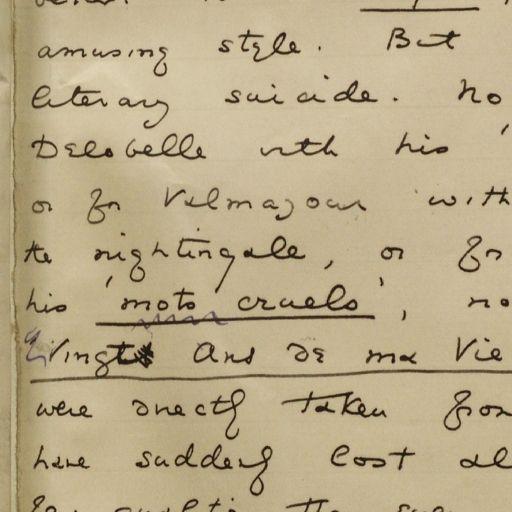 amusing style. But
literary suicide. No
Delobelle with his '
or for Valmajour with
the nightingale, or for
his 'mots cruels', no
Vingt Ans de ma Vie
were directly taken from
have suddenly lost al